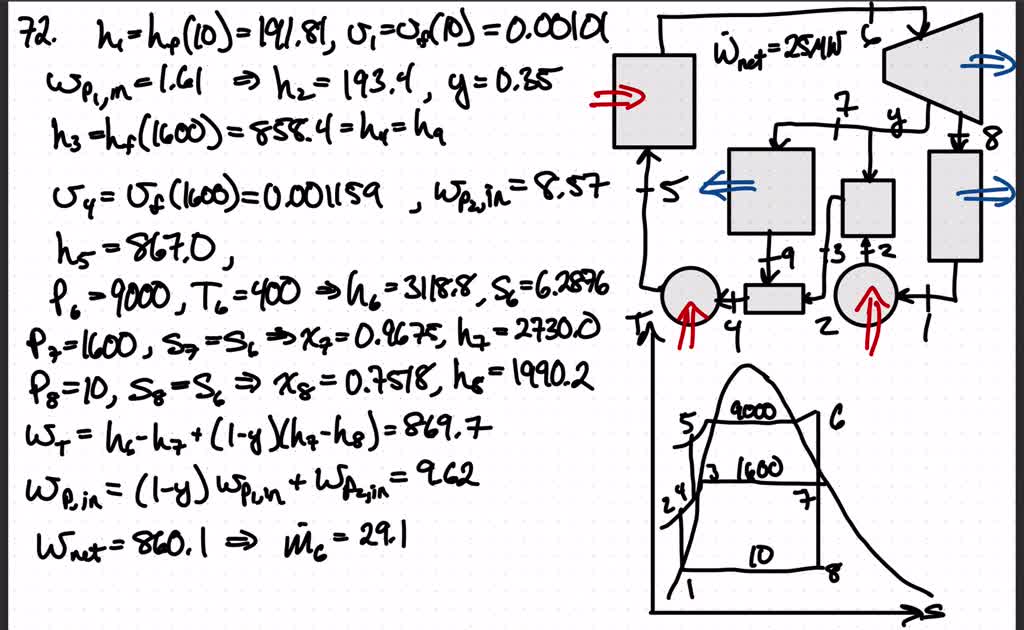 72. h₁=h_f(10)=191.81, υ₁=υ_f(10)=0.00101
w_P₁,in=1.61 ⇒ h₂=193.4, y=0.35
h₃=h_f(1600)=858.4=h₄=h₉
υ₄=υ_f(1600)=0.001159, w_P₂,in=8.57
h₅=867.0,
P₆=9000, T₆=400 ⇒ h₆=3118.8, s₆=6.2876
P₇=1600, s₇=s₆ ⇒ x₇=0.9675, h₇=2730.0
P₈=10, s₈=s₆ ⇒ x₈=0.7518, h₈=1990.2
w_T=h₆-h₇+(1-y)(h₇-h₈)=869.7
w_P,in=(1-y)w_P₁,in+w_P₂,in=9.62
w_net=860.1 ⇒ ṁ₆=29.1
6
Ẇnet=25MW
7
y
8
5
9
3
2
4
2
1
T
5
9000
6
3
1600
2
4
7
10
1
8
s